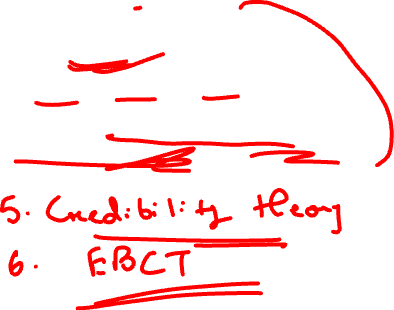 5. Credibility theory
6. EBCT